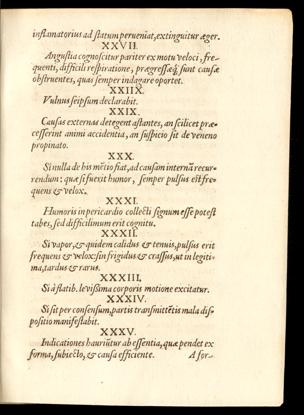 inflamatorius ad statum perueniat, extinguitur æger.
XXVII.
Angustia cognoscitur pariter ex motu veloci, fre-
quenti, difficili respiratione, prægressæq́; sunt causæ
obstruentes, quas semper indagare oportet.
XXIIX.
Vulnus seipsum declarabit.
XXIX.
Causas externas detegent astantes, an scilicet præ-
cesserint animi accidentia, an suspicio sit de veneno
propinato.
XXX.
Si nulla de his mẽtio fiat, ad causam internã recur-
rendum: quæ si fuerit humor, semper pulsus est fre-
quens & velox.
XXXI.
Humoris in pericardio collecti signum esse potest
tabes, sed difficilimum erit cognitu.
XXXII.
Si vapor, & quidem calidus & tenuis, pulsus erit
frequens & velox: sin frigidus & crassus, ut in legiti-
ma, tardus & rarus.
XXXIII.
Si à flatib. levissima corporis motione excitatur.
XXXIV.
Si sit per consensum, partis transmittẽtis mala dis-
positio manifestabit.
XXXV.
Indicationes hauriũtur ab essentia, quæ pendet ex
forma, subiecto, & causa efficiente.
A for-